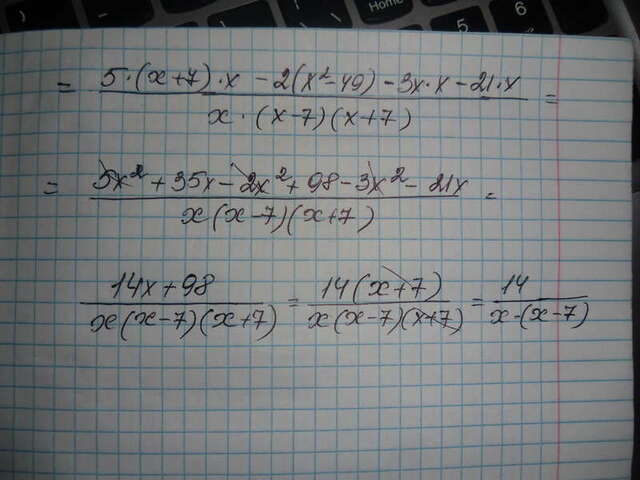 ) - + Backspace
5 6
= 5·(x+7)·x - 2(x²-49) - 3x·x - 21·x / x·(x-7)(x+7) =
= 5x² + 35x - 2x² + 98 - 3x² - 21x / x(x-7)(x+7) =
14x+98 / x(x-7)(x+7) = 14(x+7) / x(x-7)(x+7) = 14 / x-(x-7)